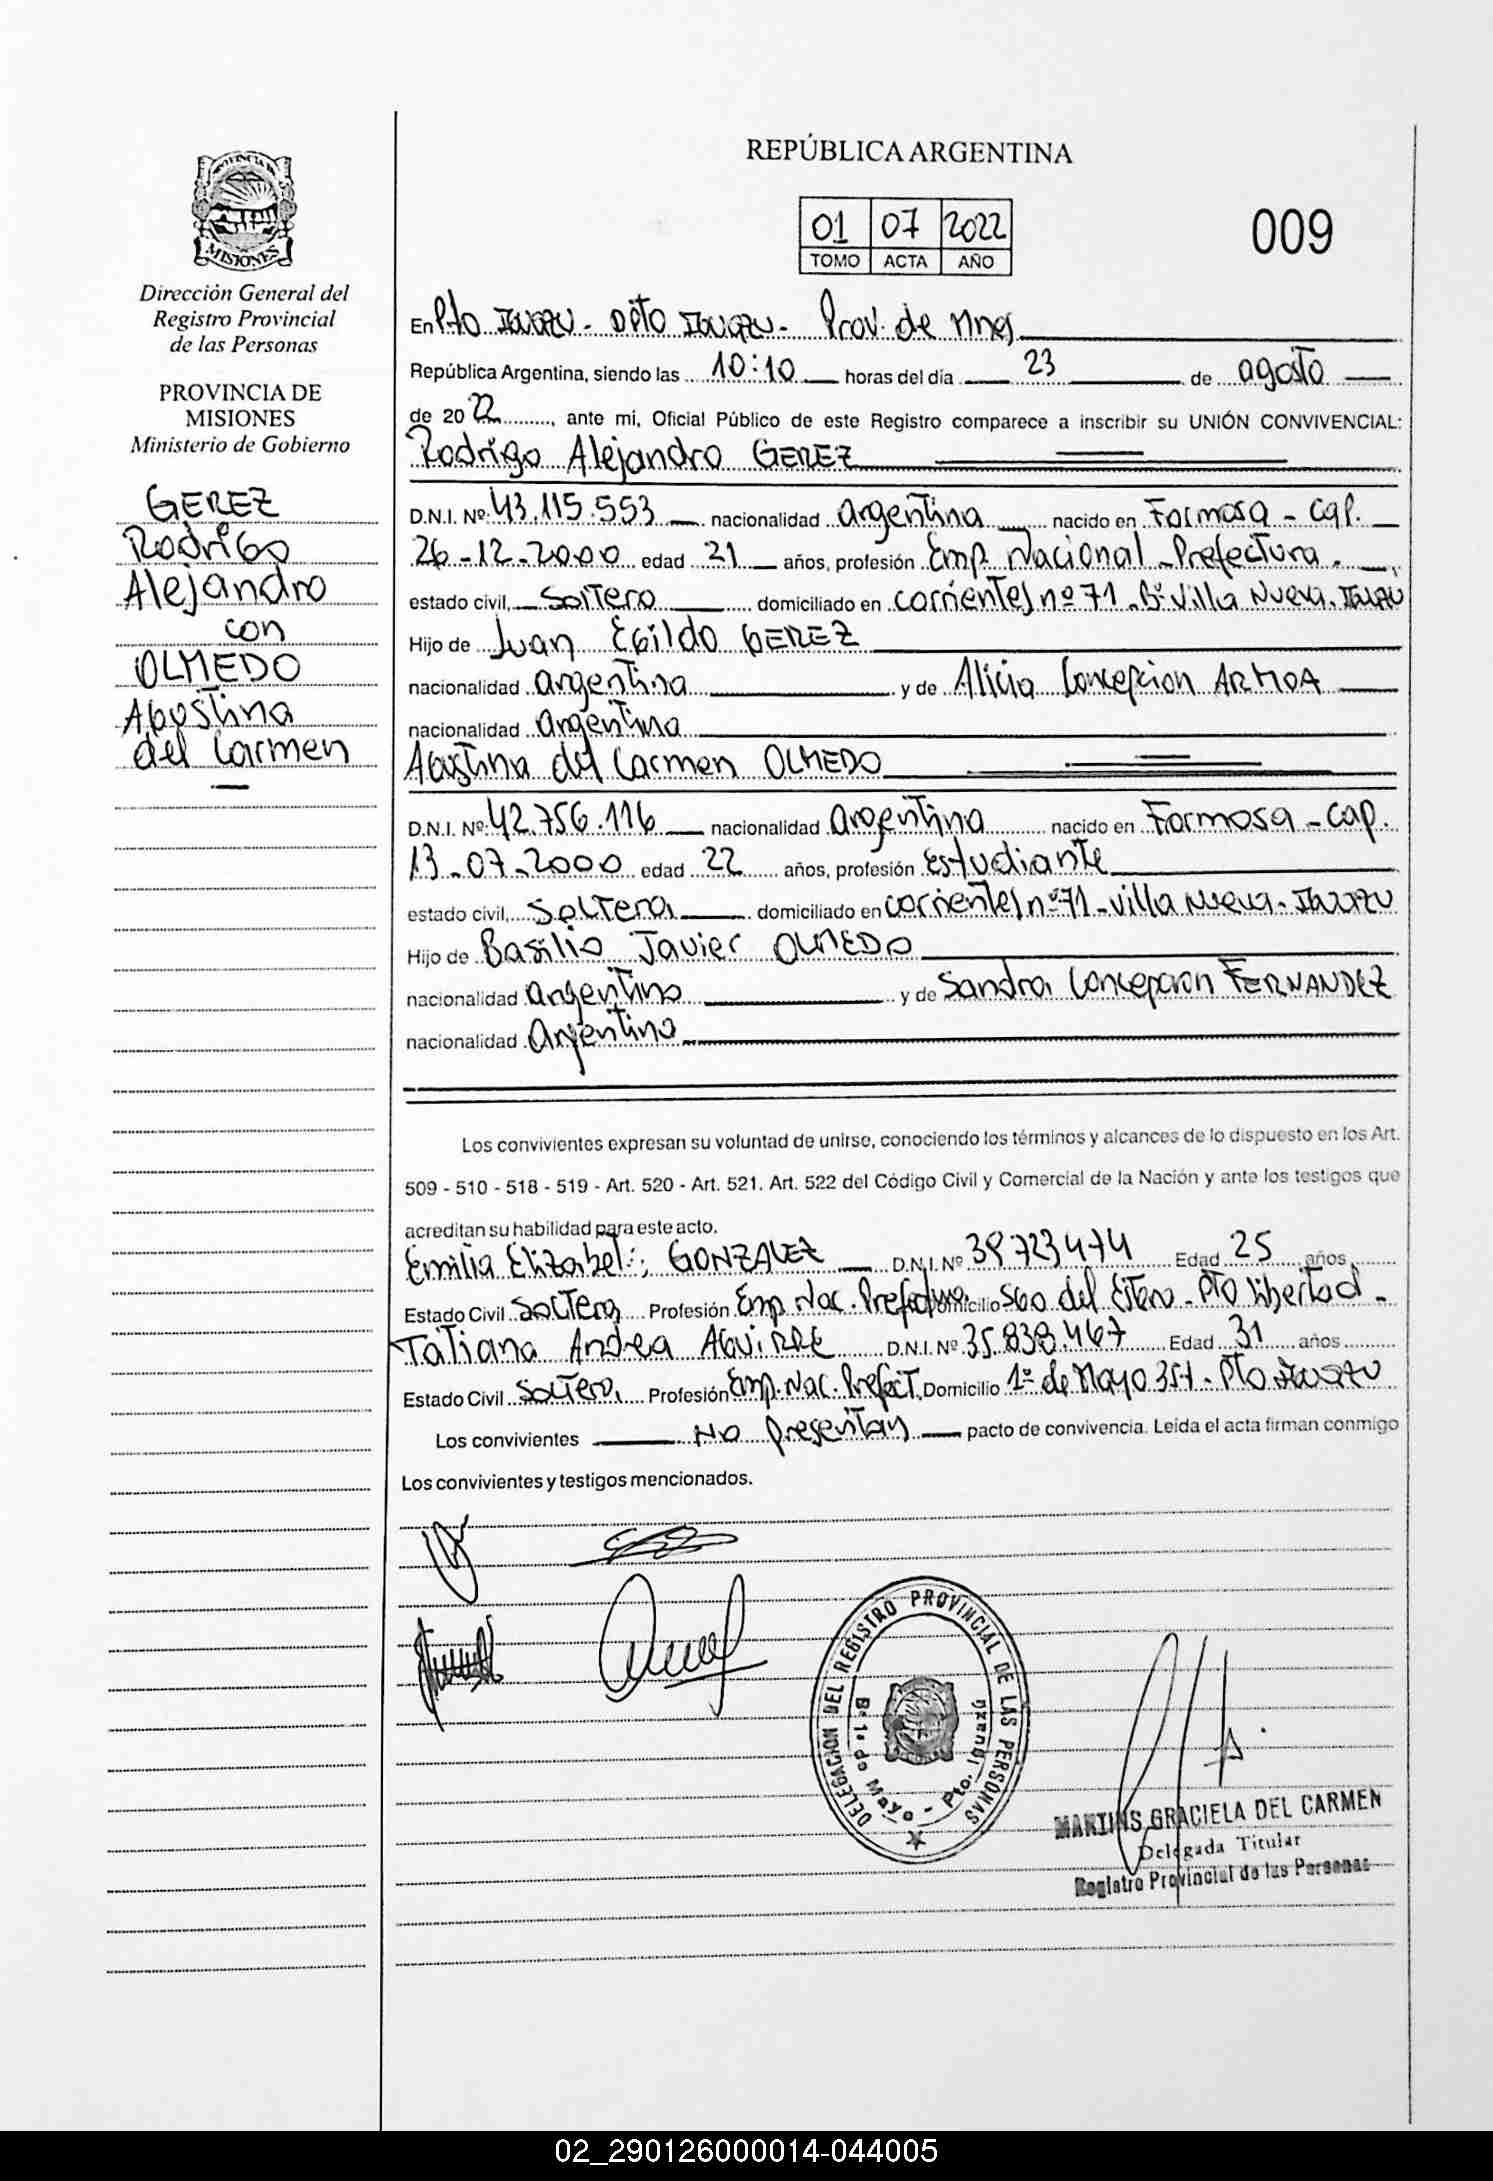 REPÚBLICA ARGENTINA
01 07 2022
TOMO ACTA AÑO
009
PROVINCIA DE
MISIONES
Dirección General del
Registro Provincial
de las Personas
PROVINCIA DE
MISIONES
Ministerio de Gobierno
GEREZ
Rodrigo
Alejandro
con
OLMEDO
Agostina
del Carmen
En Pto Iguazu - Dpto Iguazu - Prov. de Mnes
República Argentina, siendo las 10:10 horas del día 23 de agosto
de 2022, ante mi, Oficial Público de este Registro comparece a inscribir su UNIÓN CONVIVENCIAL:
Rodrigo Alejandro GEREZ
D.N.I. Nº 43.115.553 nacionalidad argentina nacido en Formosa - cap.
26-12-2000 edad 21 años, profesión Emp. Nacional - Prefectura.
estado civil, soltero domiciliado en corrientes nº 71 - Bº Villa Nueva. Iguazu
Hijo de Juan Egildo GEREZ
nacionalidad argentina y de Alicia Concepcion ARMOA
nacionalidad argentina
Agostina del Carmen OLMEDO
D.N.I. Nº 42.756.116 nacionalidad Argentina nacido en Formosa - cap.
13-07-2000 edad 22 años, profesión estudiante
estado civil, soltera domiciliado en corrientes nº 71 - villa nueva - Iguazu
Hijo de Basilio Javier OLMEDO
nacionalidad argentino y de Sandra Concepcion FERNANDEZ
nacionalidad Argentina
Los convivientes expresan su voluntad de unirse, conociendo los términos y alcances de lo dispuesto en los Art.
509 - 510 - 518 - 519 - Art. 520 - Art. 521. Art. 522 del Código Civil y Comercial de la Nación y ante los testigos que
acreditan su habilidad para este acto.
Emilia Elizabet GONZALEZ D.N.I. Nº 39723474 Edad 25 años
Estado Civil soltera Profesión Emp. Nac. Prefectura Domicilio Sgo del Estero - Pto libertad -
Tatiana Andrea AGUIRRE D.N.I. Nº 35.838.467 Edad 31 años
Estado Civil soltera Profesión Emp. Nac. Prefect. Domicilio 1º de Mayo 351 - Pto Iguazu
Los convivientes No presentan pacto de convivencia. Leida el acta firman conmigo
Los convivientes y testigos mencionados.
DELEGACION DEL REGISTRO PROVINCIAL DE LAS PERSONAS
Bº 1º de Mayo - Pto. Iguazú
MARTINS GRACIELA DEL CARMEN
Delegada Titular
Registro Provincial de las Personas
02_290126000014-044005